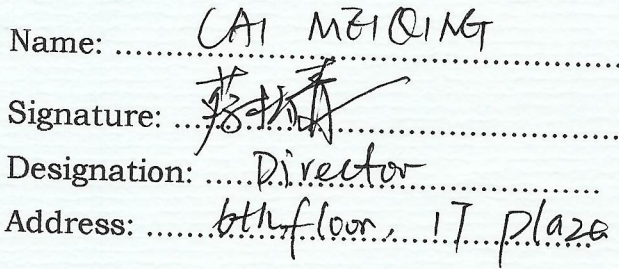 Name: CAI MEIQING
Signature:
Designation: Director
Address: 6th floor, IT plaza